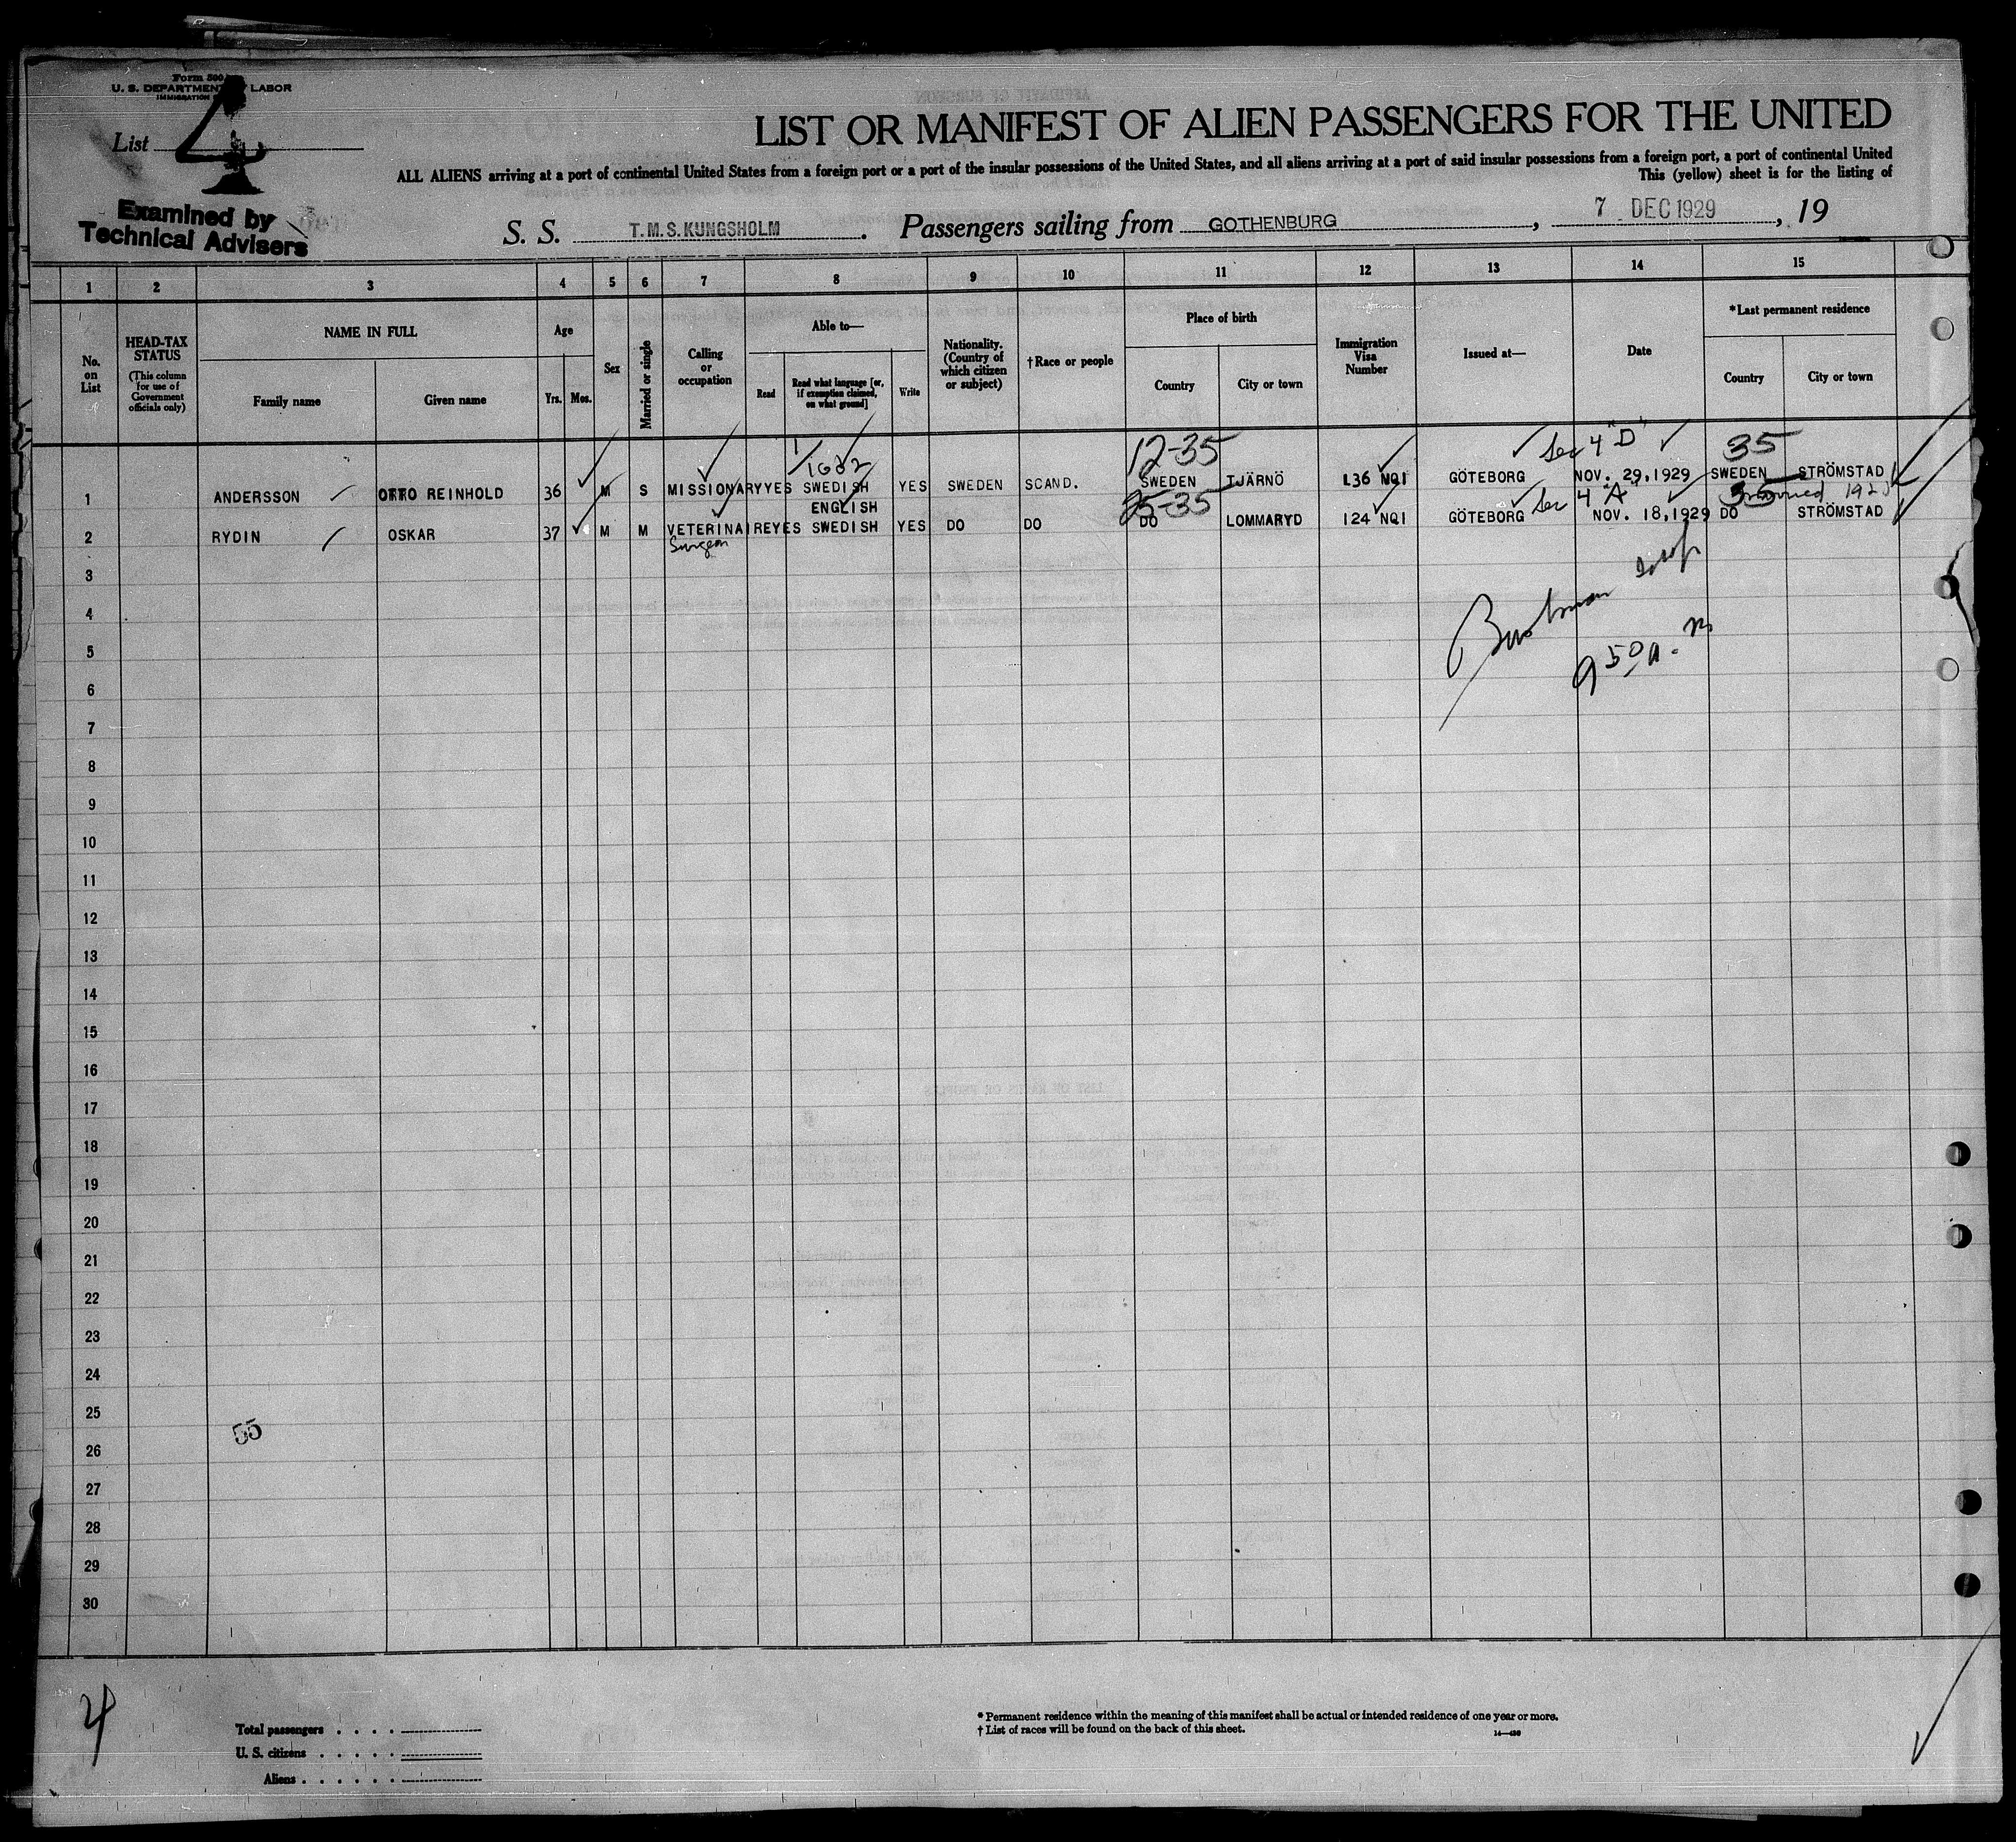 Form 500
U. S. DEPARTMENT LABOR
IMMIGRATION
List 4
LIST OR MANIFEST OF ALIEN PASSENGERS FOR THE UNITED
ALL ALIENS arriving at a port of continental United States from a foreign port or a port of the insular possessions of the United States, and all aliens arriving at a port of said insular possessions from a foreign port, a port of continental United
This (yellow) sheet is for the listing of
Examined by
Technical Advisers
S. S. T.M.S.KUNGSHOLM. Passengers sailing from GOTHENBURG, 7 DEC 1929, 19
1 2 3 4 5 6 7 8 9 10 11 12 13 14 15
No. on List
HEAD-TAX STATUS (This column for use of Government officials only)
NAME IN FULL
Family name
Given name
Age
Yrs. Mos.
Sex
Married or single
Calling or occupation
Able to—
Read
Read what language [or, if exemption claimed, on what ground]
Write
Nationality. (Country of which citizen or subject)
†Race or people
Place of birth
Country
City or town
Immigration Visa Number
Issued at—
Date
*Last permanent residence
Country
City or town
12-35 Sec 4 "D" 35
1 ANDERSSON OTTO REINHOLD 36 M S MISSIONARY YES SWEDISH YES SWEDEN SCAND. SWEDEN TJÄRNÖ 136 NQI GÖTEBORG NOV. 29,1929 SWEDEN STRÖMSTAD
ENGLISH 25-35 Sec 4 "A" 35
2 RYDIN OSKAR 37 M M VETERINAIRE YES SWEDISH YES DO DO DO LOMMARYD 124 NQI GÖTEBORG NOV. 18,1929 DO STRÖMSTAD
Surgeon
3
4
5
9 50 a. m
6
7
8
9
10
11
12
13
14
15
16
17
18
19
20
21
22
23
24
25
55
26
27
28
29
30
4
Total passengers . . . .
U. S. citizens . . . . .
Aliens . . . . . .
* Permanent residence within the meaning of this manifest shall be actual or intended residence of one year or more.
† List of races will be found on the back of this sheet.